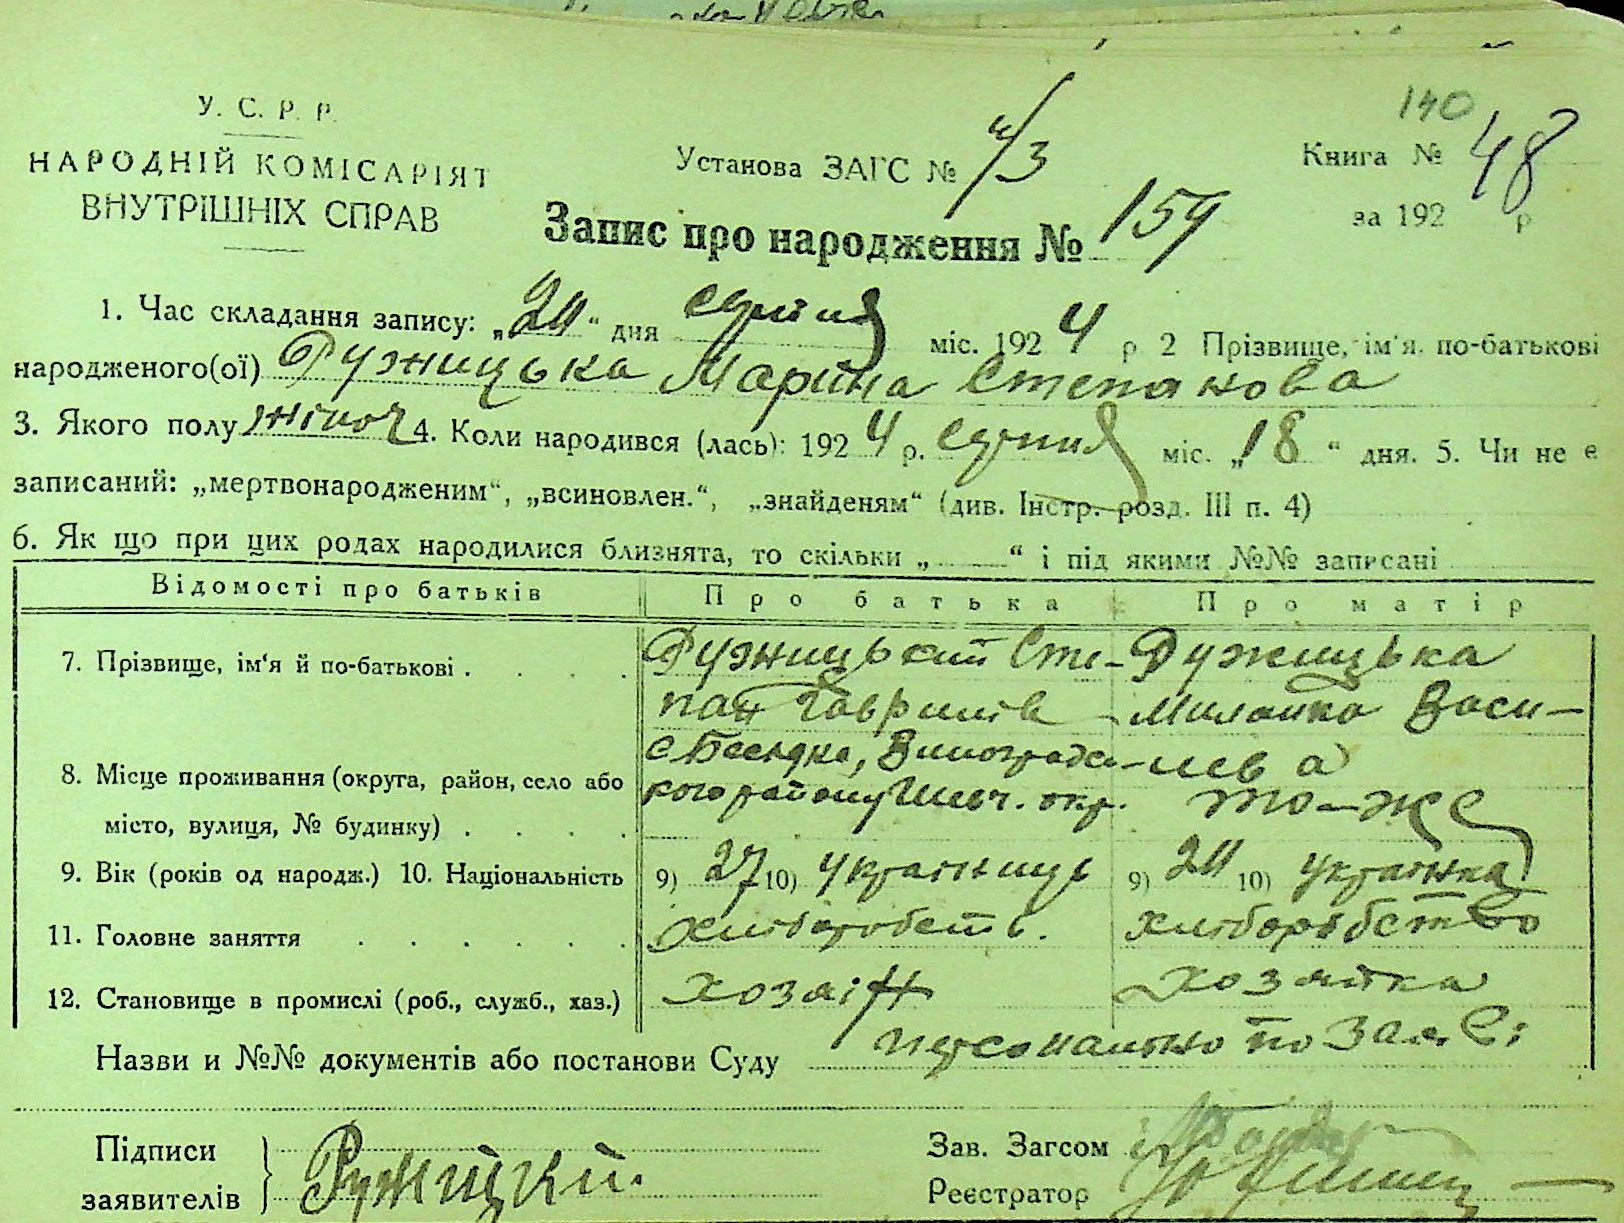 140
У. С. Р. Р.
НАРОДНІЙ КОМІСАРІЯТ
ВНУТРІШНІХ СПРАВ
Установа ЗАГС №
Книга № 48
за 192 р
Запис про народження № 159
1. Час складання запису: „24“ дня серпня міс. 1924 р 2 Прізвище, ім'я, по-батькові
народженого(ої) Ружицька Марина Степанова
3. Якого полу жіноч 4. Коли народився (лась): 1924 р. серпня міс. „18“ дня. 5. Чи не є
записаний: „мертвонародженим“, „всиновлен.“, „знайденям“ (див. Інстр. розд. III п. 4)
6. Як що при цих родах народилися близнята, то скільки „ “ і під якими №№ записані
Відомості про батьків Про батька Про матір
7. Прізвище, ім'я й по-батькові . . . . Ружицький Сте- Ружицька
пан Гаврилів Миланка Васи-
лева
8. Місце проживання (округа, район, село або
місто, вулиця, № будинку) . . . .
с. Беседка, Виноградс-
кого району Шевч. окр. то-же
9. Вік (років од народж.) 10. Національність 9) 27 10) українець 9) 24 10) українка
11. Головне заняття . . . . . . хлiборобств. хлiборобство
12. Становище в промислі (роб., служб., хаз.) хозяін хозяйка
Назви и №№ документів або постанови Суду персонально по заяві
Підписи
заявителів Ружицкий.
Зав. Загсом
Реєстратор